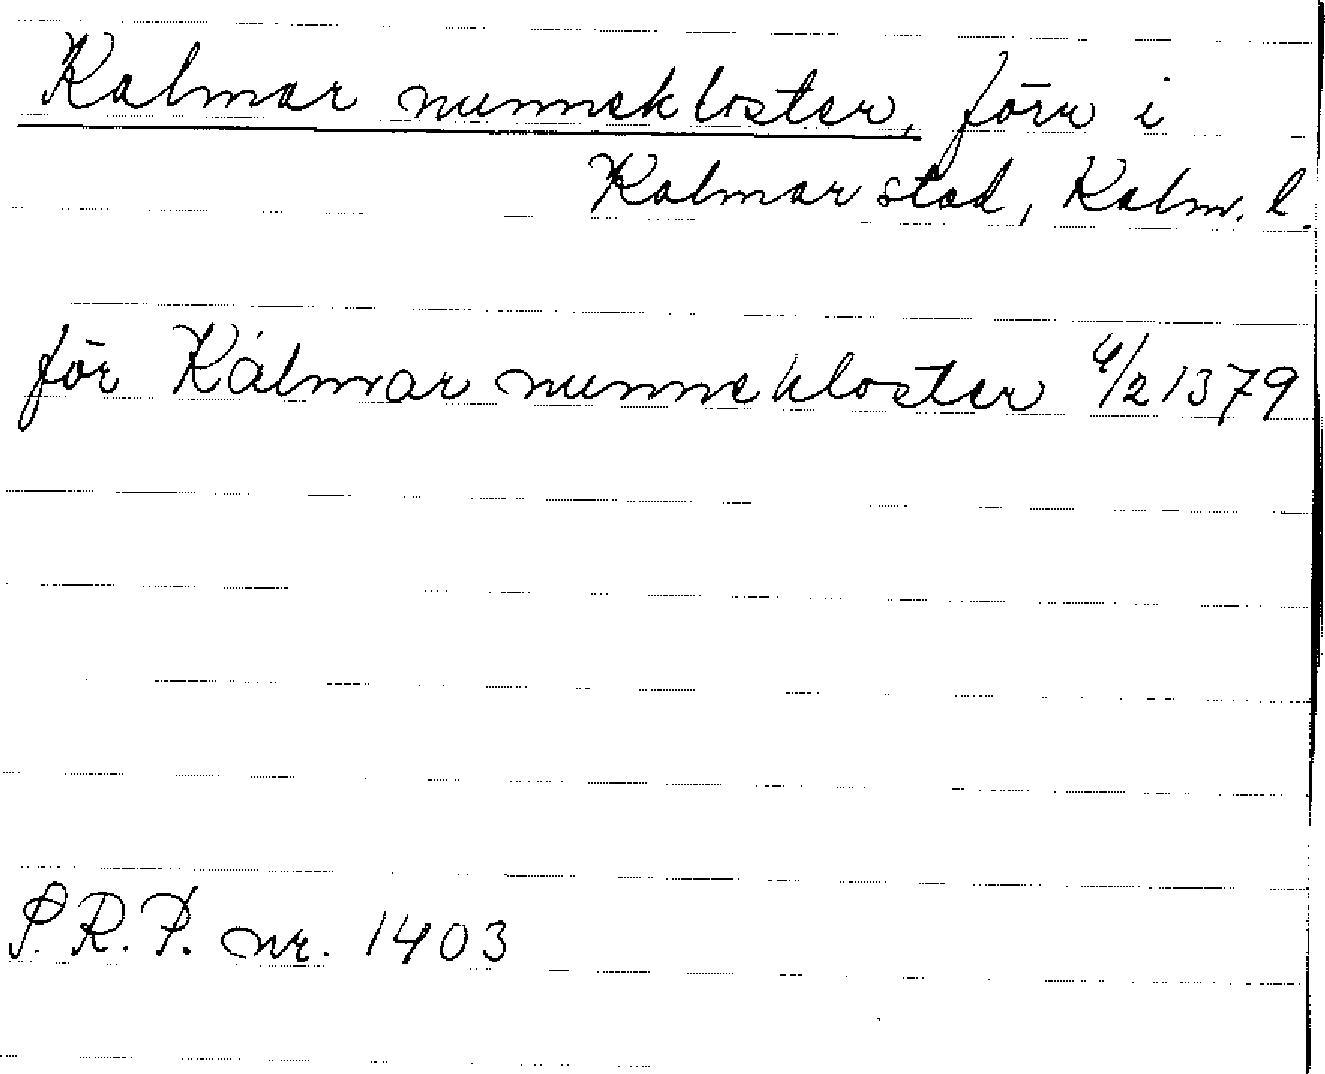 Kalmar nunnekloster, förr i
Kalmar stad, Kalm. l.
för Kalmar nunnekloster 4/2 1379
S.R.P. nr. 1403